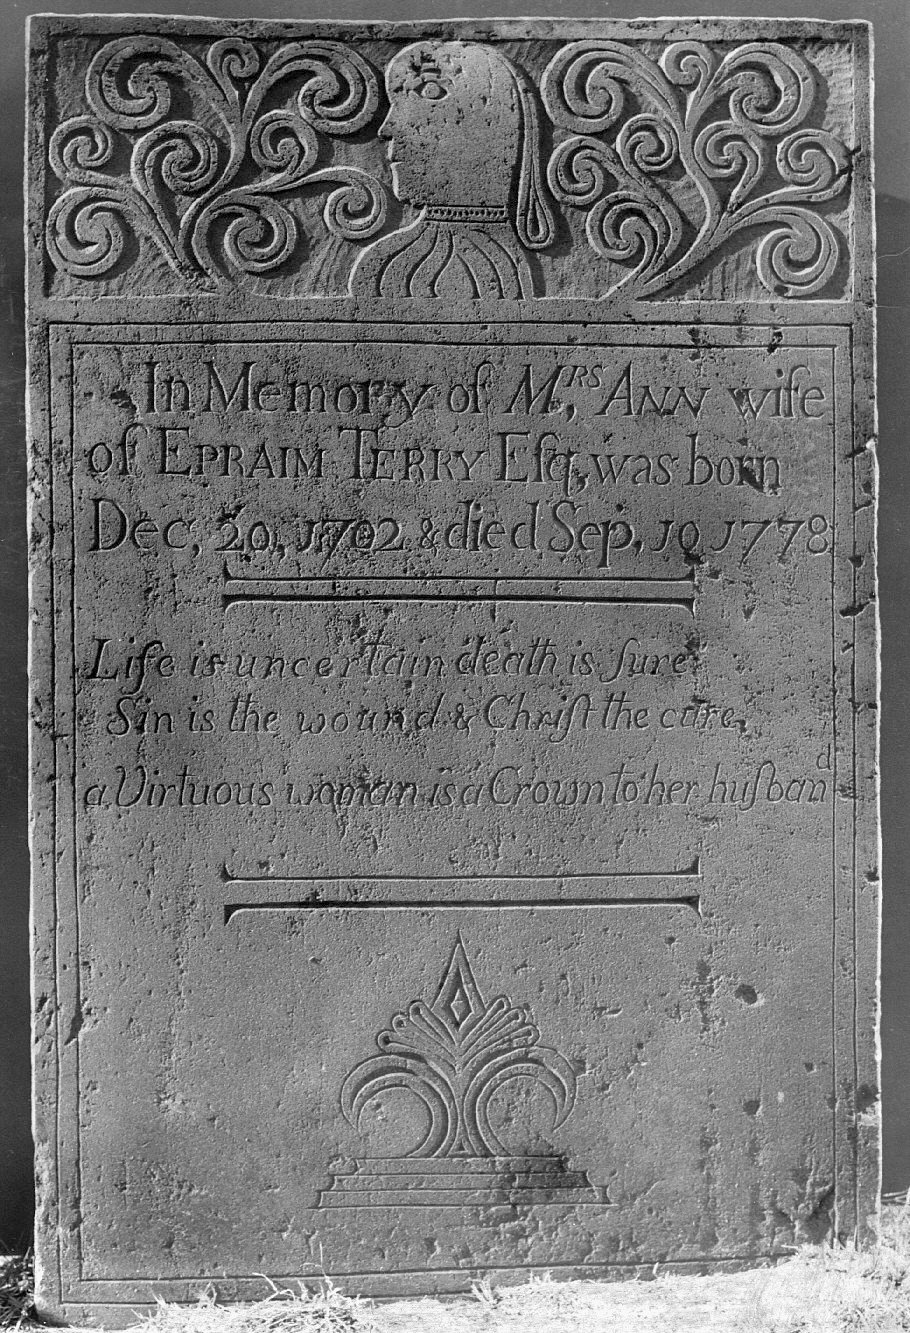 In Memory of, Mʳˢ, Ann wife
of, EPRAIM TERRY, Eſq, was born
Dec, 20, J702, & died, Sep, J0, J778
Life is uncertain death is ſure
Sin is the wound & Chriſt the cure
a Virtuous woman is a Crown to her huſbanᵈ